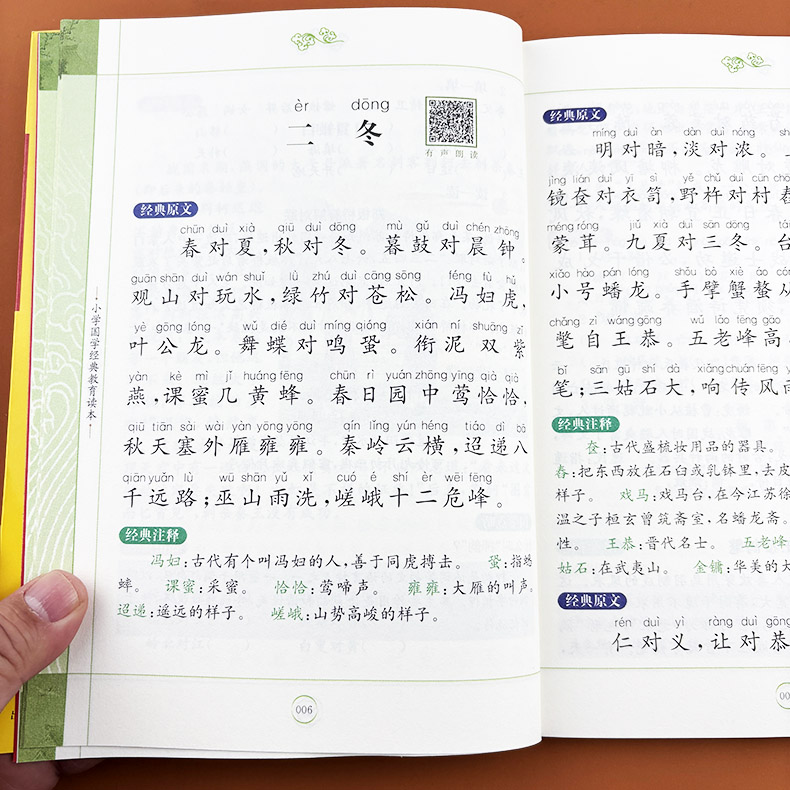 小学国学经典教育读本
èr dōng
二 冬
有声朗读
经典原文
chūn duì xià qiū duì dōng mù gǔ duì chén zhōng
春对夏，秋对冬。暮鼓对晨钟。
guān shān duì wán shuǐ lǜ zhú duì cāng sōng féng fù hǔ
观山对玩水，绿竹对苍松。冯妇虎，
yè gōng lóng wǔ dié duì míng qióng xián ní shuāng zǐ
叶公龙。舞蝶对鸣蛩。衔泥双紫
yàn kè mì jǐ huáng fēng chūn rì yuán zhōng yīng qià qià
燕，课蜜几黄蜂。春日园中莺恰恰，
qiū tiān sài wài yàn yōng yōng qín lǐng yún héng tiáo dì bā
秋天塞外雁雍雍。秦岭云横，迢递八
qiān yuǎn lù wū shān yǔ xǐ cuó é shí èr wēi fēng
千远路；巫山雨洗，嵯峨十二危峰。
经典注释
冯妇：古代有个叫冯妇的人，善于同虎搏击。 蛩：指蟋
蟀。 课蜜：采蜜。 恰恰：莺啼声。 雍雍：大雁的叫声。
迢递：遥远的样子。 嵯峨：山势高峻的样子。
006
经典原文
míng duì àn dàn duì nóng
明对暗，淡对浓。
jìng lián duì yī sì yě chǔ duì cūn
镜奁对衣笥，野杵对村舂
méng róng jiǔ xià duì sān dōng
蒙茸。九夏对三冬。台
xiǎo hào pán lóng shǒu bò xiè áo
小号蟠龙。手擘蟹螯从
chǎng zì wáng gōng wǔ lǎo fēng gāo
氅自王恭。五老峰高
bǐ sān gū shí dà xiǎng chuán fēng
笔；三姑石大，响传风雨
经典注释
奁：古代盛梳妆用品的器具。
舂：把东西放在石臼或乳钵里，去皮
样子。 戏马：戏马台，在今江苏徐
温之子桓玄曾筑斋室，名蟠龙斋。
性。 王恭：晋代名士。 五老峰
姑石：在武夷山。 金镛：华美的大
经典原文
rén duì yì ràng duì gōng
仁对义，让对恭